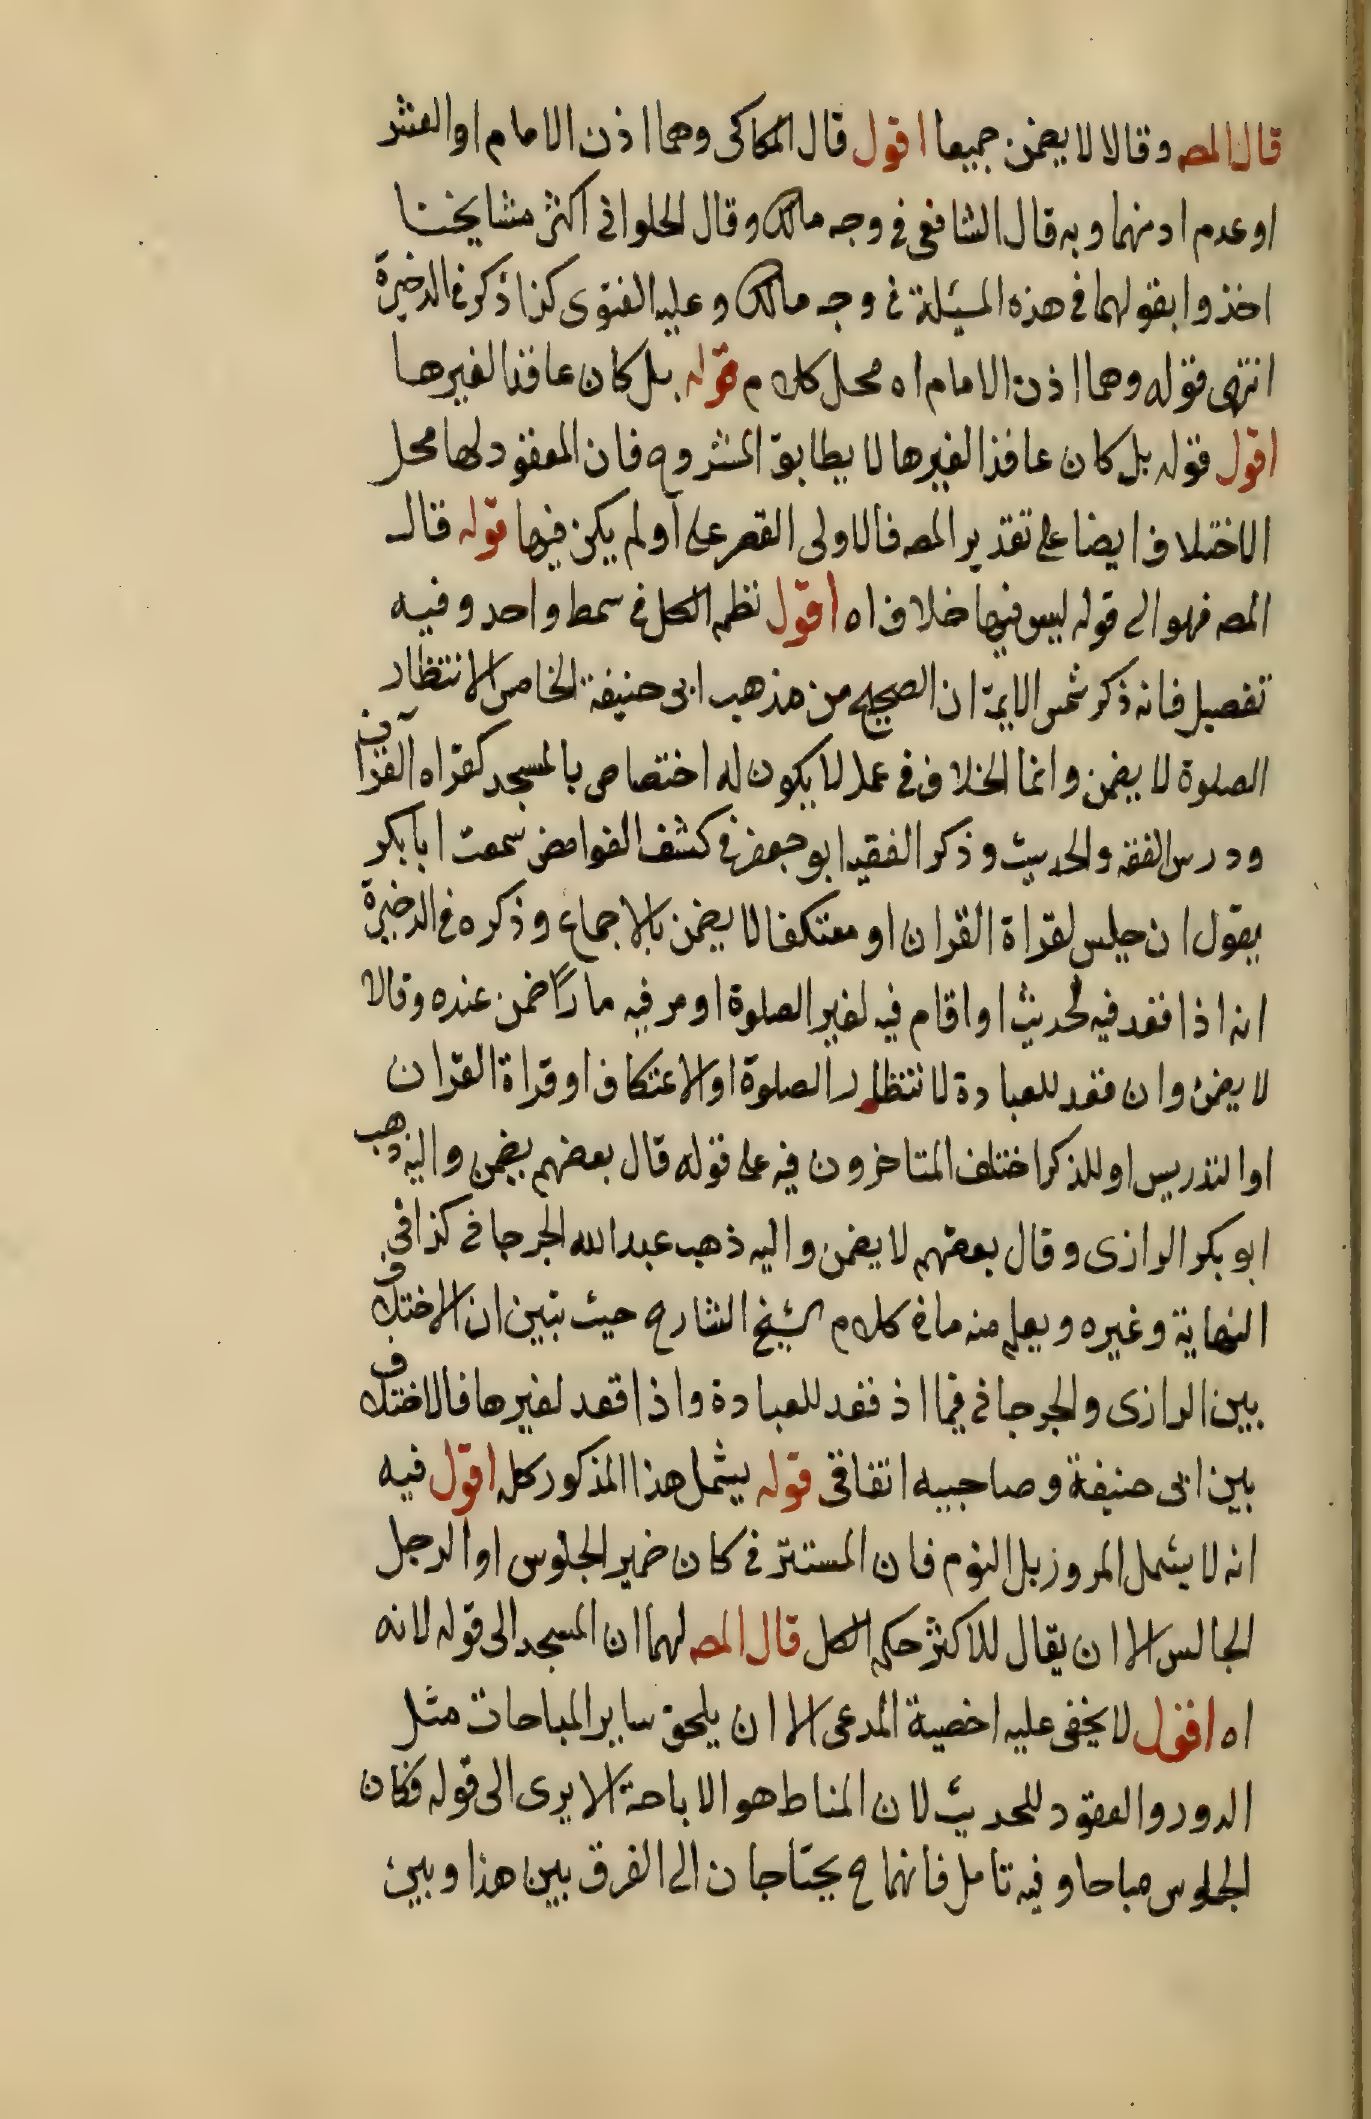 قال المصه وقالا لا يضمن جميعا اقول قال الكاكى وهما اذن الامام او العشر
او عدم اد منهما وبه قال الشافعى فى وجه مالك وقال الحلوانى اكثر مشايخنا
اخذوا بقولهما فى هذه المسئلة فى وجه مالك وعليه الفتوى كذا ذكر فى الذخيرة
انتهى قوله وهما اذن الامام اه محل كلام قوله بل كان عاقدا لغيرها
اقول قوله بل كان عاقدا لغيرها لا يطابق المشروح فان المعقود لها محل
الاختلاف ايضا على تقدير المصه فالاولى القصر على او لم يكن فيها قوله قال
المصه فهو الى قوله ليس فيها خلاف اه اقول نظم الكل فى سمط واحد وفيه
تفصيل فانه ذكر شمس الايمة ان الصحيح من مذهب ابى حنيفة الخاص الانتظار
الصلوة لا يضمن وانما الخلاف فى عمل لا يكون له اختصاص بالمسجد كقراه القرآن
ودرس الفقه والحديث وذكر الفقيه ابو جعفر فى كشف الغوامض سمعت ابا بكر
يقول ان جلس لقراة القران او معتكفا لا يضمن بالاجماع وذكره فى الذخيرة
انه اذا قعد فيه لحديث او اقام فيه لغير الصلوة او مر فيه مارًا ضمن عنده وقالا
لا يضمن وان قعد للعبادة لانتظار الصلوة او الاعتكاف او قراة القران
او التدريس او للذكر اختلف المتاخرون فيه على قوله قال بعضهم يضمن واليه ذهب
ابو بكر الرازى وقال بعضهم لا يضمن واليه ذهب عبد الله الجرجانى كذا فى
النهاية وغيره ويعلم منه ما فى كلام الشيخ الشارح حيث تبين ان الاختلاف
بين الرازى والجرجانى فيما اذ قعد للعبادة واذا قعد لغيرها فالاختلاف
بين ابى حنيفة وصاحبيه اتفاقى قوله يشمل هذا المذكور كله اقول فيه
انه لا يشمل المرور بل النوم فان المستتر فى كان ضمير الجلوس او الرجل
الجالس الا ان يقال للاكثر حكم الكل قال المصه لهما ان المسجد الى قوله لانه
اه اقول لا يخفى عليه اخصية المدعى الا ان يلحق ساير المباحات مثل
الدور والعقود للحديث لان المناط هو الاباحة الا يرى الى قوله فكان
الجلوس مباحا وفيه تامل فانهما ح يحتاجان الى الفرق بين هذا وبين